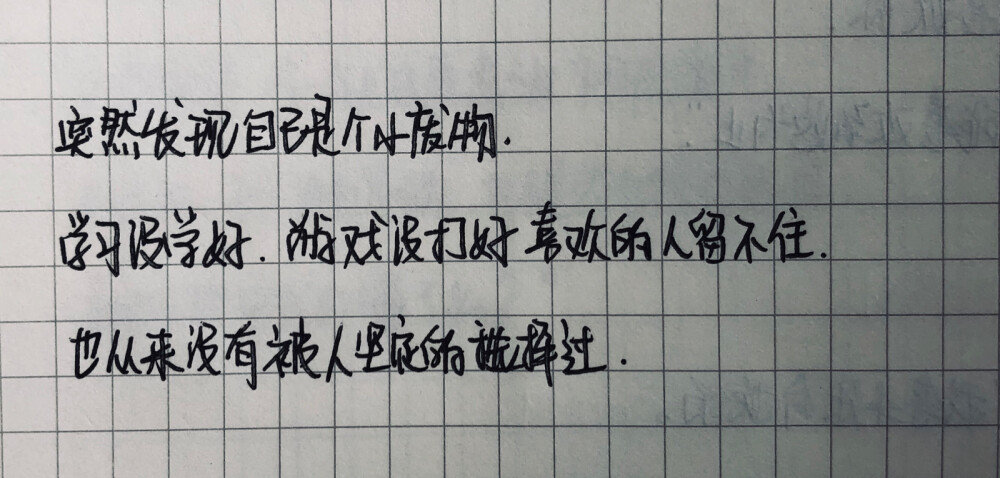 突然发现自己是个小废物.
学习没学好.游戏没打好喜欢的人留不住.
也从来没有被人坚定的选择过.